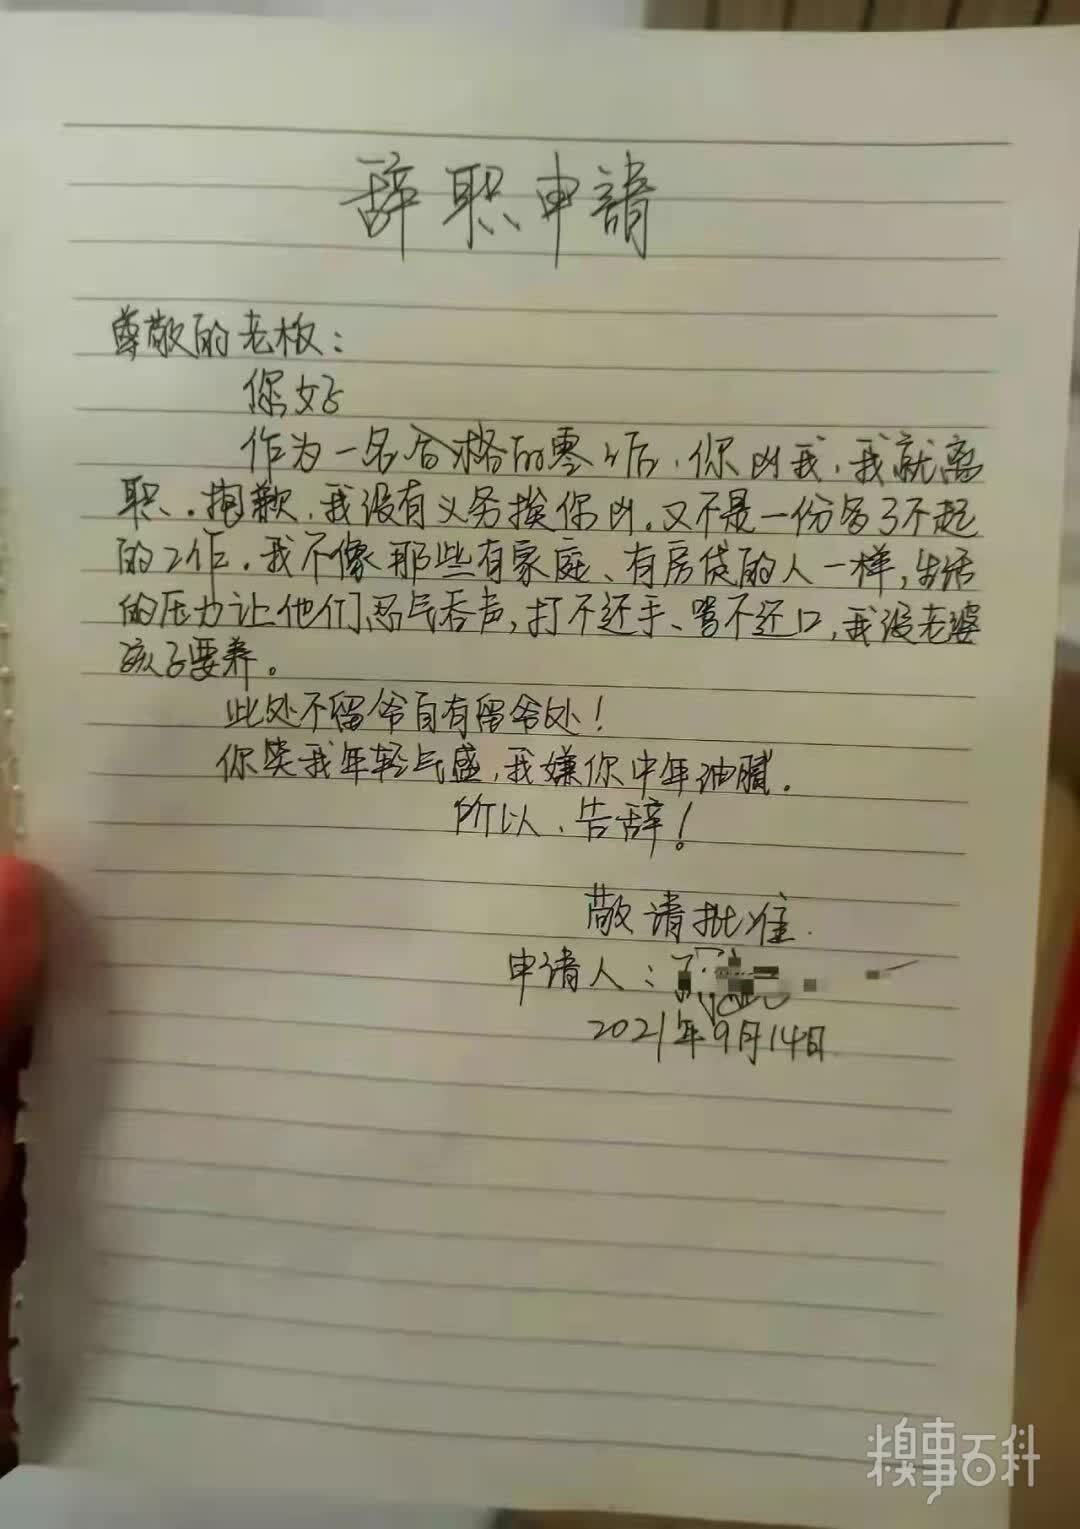 辞职申請
尊敬的老板：
你好
作为一名合格的零零后，你凶我，我就离
职。抱歉，我没有义务挨你凶。又不是一份多了不起
的工作。我不像那些有家庭、有房贷的人一样，生活
的压力让他们忍气吞声，打不还手、骂不还口，我没老婆
孩子要养。
此处不留爷自有留爷处！
你笑我年轻气盛，我嫌你中年油腻。
所以、告辞！
敬请批准.
申请人：
2021年9月14日
糗事百科